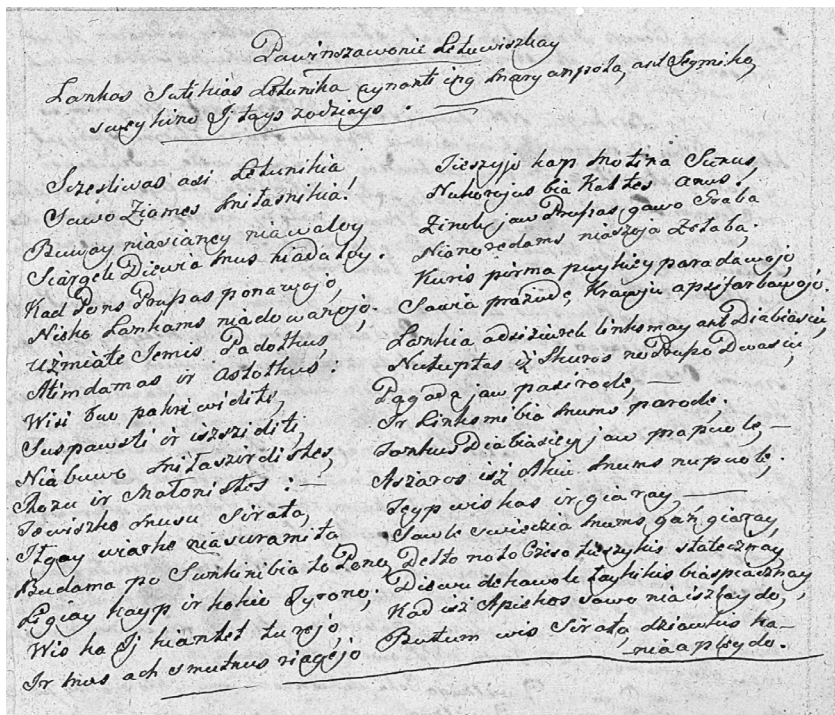 Pawinszawonie Letuwiszkay
Lankas Sutikias Letunika aynanti ing Maryanpola, ant Seymika,
sweykino Jj tays zodziays.
Sczesliwas asi Letunikia,
Sawo Ziames Miłasnikia!
Buway niasiancy niawaloy
Sciargek Diewia mus niadaloy.
Kad Pons Prusas ponawojo,
Nisko Lankams niadowanojo.
Użmiałe Żemis Padotkus,
Atimdamas ir Astotkus:
Wisi buw pakriwiditi,
Suspawsti ir iszsziditi,
Niabuwo Miłaszirdistes,
Rozu ir Małonistes: —
Tewiszko Musu Sirata,
Ilgay wiarke niasuramita
Budama po Sunkinibia to Pono,
Ligiay kayp ir kokio Tyrono;
Wis ka Jj kiantet turejo,
Ir mus ach smutnus riagejo
Tieszyjo kap Motina Sunus,
Nukorojus bia Kaltes anus!
Żinok jaw Prusas gawo Graba
Nianoredams niaszoja Żełaba;
Kuris pirma puykiey paradawojo,
Sawia prażudę, Krawju apsifarbawojo.
Lankia adsiżiurek linksmay ant Diabiasiu,
Nutuptas iż Skuros no Prupo Dwasiu,
Pagada jaw pasirode, —
Ir Linksmibia Mums parode.
Tankus Diabiasiey jaw prapuole, —
Aszaros isż Akiu Mums nupuole,
Teyp wiskas ir giaray, —
Saule swieczia mums gań giaray,
Delto noto Czeso tieszykis statecznay,
Diewu dekawok taykikis biaspiacznay
Kad isż Apiekos sawo niaiszlaydo,
Butum wis Sirata, dziaukus ka-
niaaplaydo.